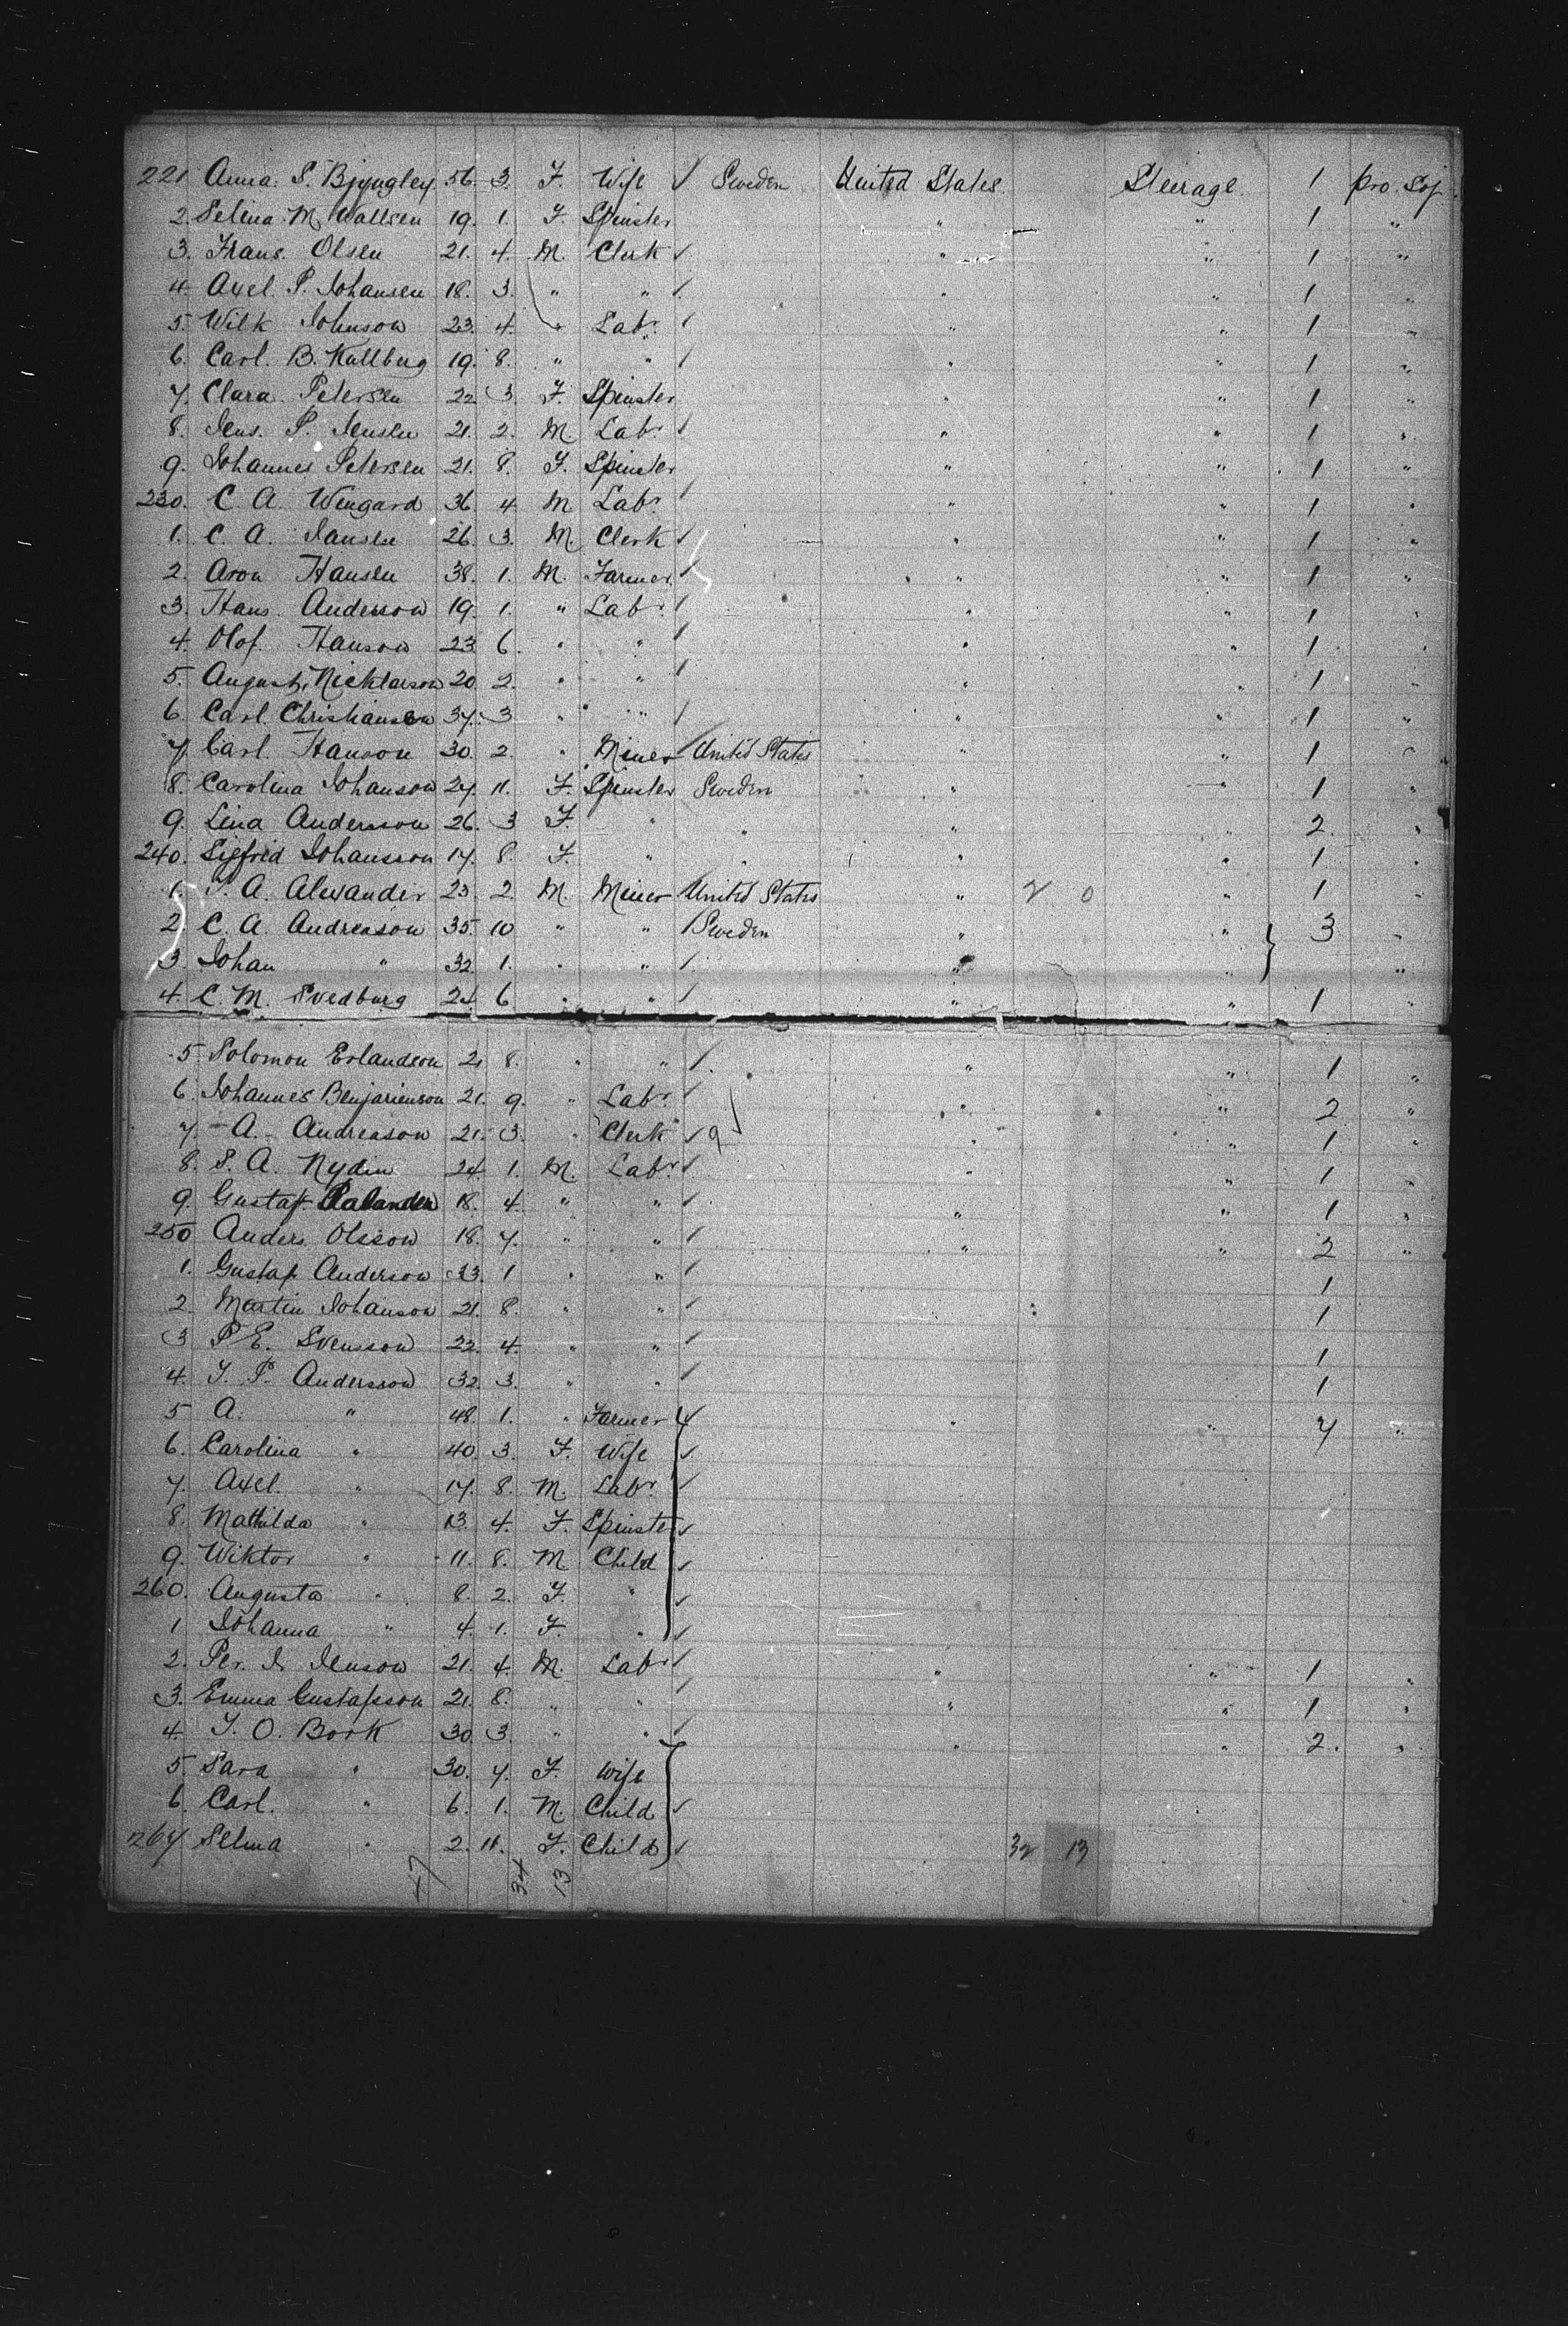 221 Anna S. Bjyngley 56. 3. F. Wife Sweden United States Steerage 1 pro. Soj.
2. Selina M. Wallsen 19. 1. F. Spinster " " 1 "
3. Frans. Olsen 21. 4. M. Clerk " " 1 "
4. Axel. P. Johansen 18. 3. " " " " 1 "
5. Wilk Johnson 23. 4. " Labr. " " 1 "
6. Carl. B. Kullberg 19. 8. " " " " 1 "
7. Clara Petersen 22 3. F. Spinster " " 1 "
8. Jens. P. Jensen 21. 2. M. Labr. " " 1 "
9. Johannes Petersen 21. 8. F. Spinster " " 1 "
230. C. A. Wengard 36. 4 M Labr. " " 1 "
1. C. A. Jansen 26. 3. M. Clerk " " 1 "
2. Aron Hansen 38. 1. M. Farmer " " 1 "
3. Hans. Anderson 19. 1. " Labr. " " 1 "
4. Olof. Hanson 23 6. " " " " 1 "
5. August Nicklarson 20. 2. " " " " 1 "
6. Carl. Christiansen 37. 3 " " " " 1 "
7. Carl. Hanson 30. 2. " Miner United States " " 1 "
8. Carolina Johanson 27. 11. F. Spinster Sweden " " 1 "
9. Lina Anderson 26. 3 F. " " " " 2. "
240. Sigfrid Johansson 17. 8. F. " " " " 1 "
1. P. A. Alexander 23. 2. M. Miner United States " 2 0 " 1 "
2. C. A. Andreason 35. 10 " " Sweden " " 3 "
3. Johan " 32. 1. " " " " "
4. C. M. Svedburg 24 6. " " " " 1 "
5 Solomon Erlandson 21 8. " " " " 1 "
6. Johannes Benjarienson 21. 9. " Labr. " " 2 "
7. A. Andreason 21. 3. " Clerk 9 " " 1 "
8. S. A. Nydin 24. 1. M. Labr. " " 1 "
9. Gustaf. 18. 4. " " " " 1 "
250 Anders Olsson 18. 7. " " " " 2 "
1. Gustaf Anderson 33. 1 " " 1
2. Martin Johanson 21. 8. " " 1
3 P. E. Svensson 22. 4. " " 1
4. J. P. Andersson 32. 3. " " 1
5 A. " 48. 1. " Farmer " " 7 "
6. Carolina " 40. 3. F. Wife
7. Axel. " 17. 8. M. Labr.
8. Mathilda " 13. 4. F. Spinster
9. Wiktor " 11. 8. M Child
260. Augusta " 8. 2. F. "
1 Johanna " 4. 1. F. "
2. Per. J. Jenson 21. 4. M. Labr. " " 1 "
3. Emma Gustafsson 21. 8. " " " " 1 "
4. J. O. Bork 30. 3. " " " " 2. "
5. Sara " 30. 7. F. Wife
6. Carl. " 6. 1. M. Child
267 Selma " 2. 11. F. Child 32 13
47 34 13